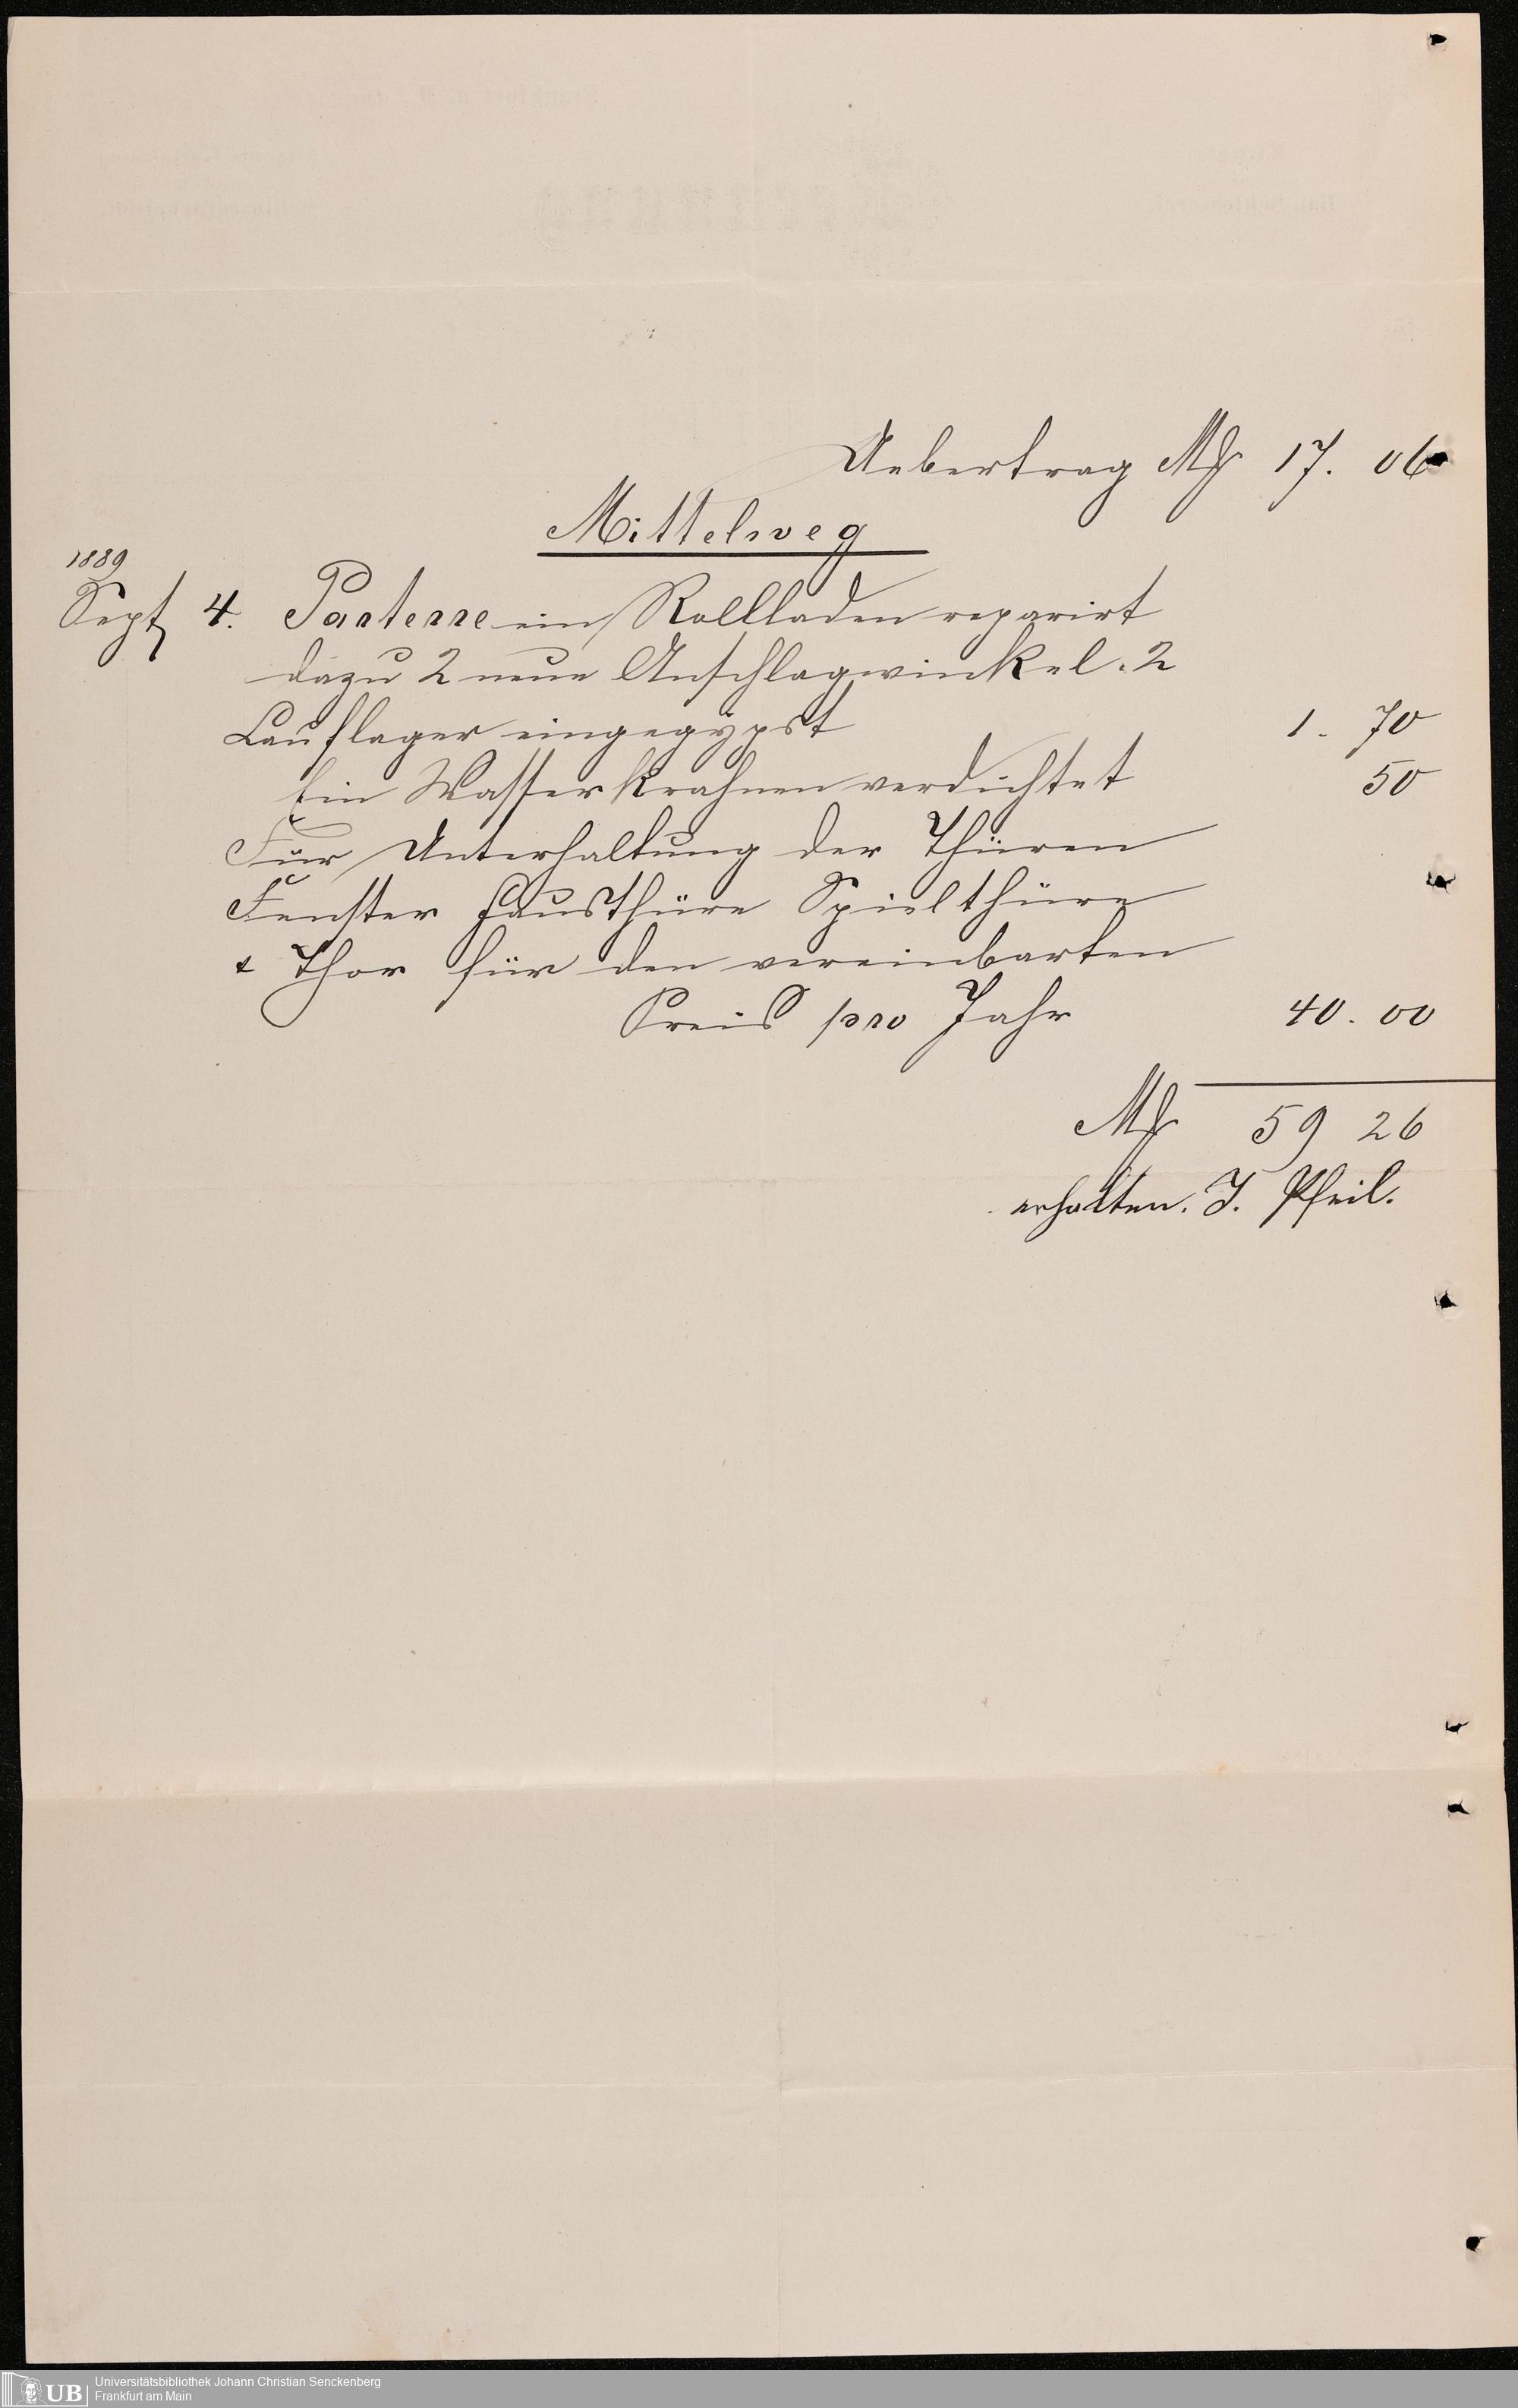 Uebertrag Mk 17. 06
Mittelweg
1889
Sept 4. Parterre ein Rollladen reparirt
dazu 2 neue Anschlagwinkel. 2
Lauflager eingegypst 1. 70
Ein Wasserkrahnen verdichtet 50
Für Unterhaltung der Thüren
Fenster Hausthüre Spielthüre
& Thor für den vereinbarten
Preis pro Jahr 40. 00
Mk 59 26
erhalten. J. Pfeil.
UB
Universitätsbibliothek Johann Christian Senckenberg
Frankfurt am Main